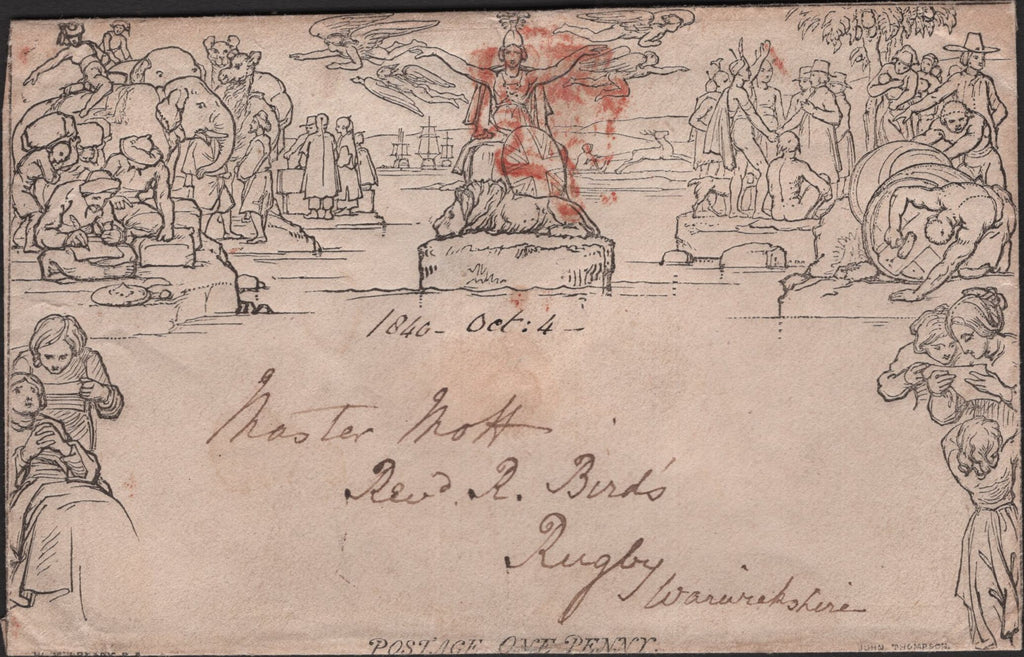 1840 - Oct: 4 -
Master Mott
Revd. R. Bird's
Rugby
Warwickshire
POSTAGE ONE PENNY.
JOHN THOMPSON.